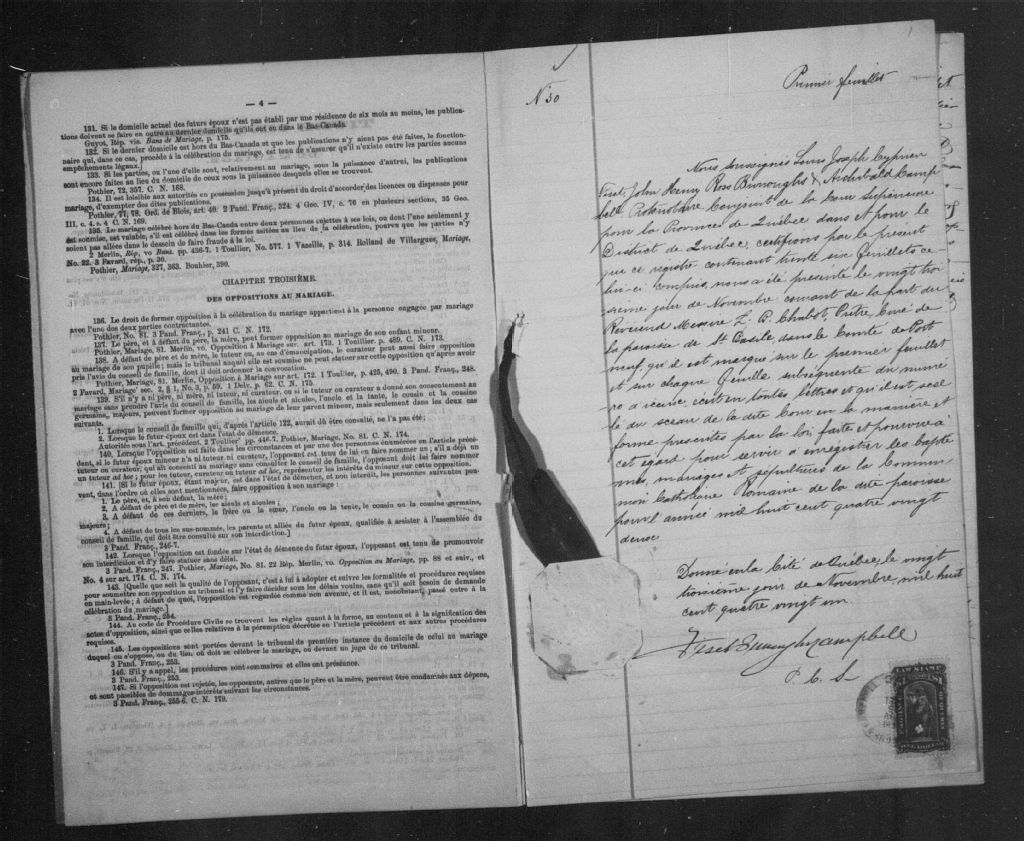 — 4 —
131. Si le domicile actuel des futurs époux n'est pas établi par une résidence de six mois au moins, les publica-
tions doivent se faire en outre au dernier domicile qu'ils ont eu dans le Bas-Canada.
Guyot, Rép. vis. Bans de Mariage, p. 175.
132. Si le dernier domicile est hors du Bas-Canada et que les publications n'y aient pas été faites, le fonction-
naire qui, dans ce cas, procède à la célébration du mariage, est tenu de s'assurer qu'il n'existe entre les parties aucuns
empêchements légaux.
133. Si les parties, ou l'une d'elle sont, relativement au mariage, sous la puissance d'autrui, les publications
sont encore faites au lieu du domicile de ceux sous la puissance desquels elles se trouvent.
Pothier, 72, 357. C. N. 168.
134. Il est loisible aux autorités en possession jusqu'à présent du droit d'accorder des licences ou dispenses pour
mariage, d'exempter des dites publications.
Pothier, 77, 78. Ord. de Blois, art. 40. 2 Pand. Franç., 324. 4 Geo. IV, c. 76 en plusieurs sections, 35 Geo.
III, c. 4. s. 4 C. N. 169.
135. Le mariage célébré hors du Bas-Canada entre deux personnes sujettes à ses lois, ou dont l'une seulement y
est soumise, est valable, s'il est célébré dans les formes usitées au lieu de la célébration, pourvu que les parties n'y
soient pas allées dans le dessein de faire fraude à la loi.
2 Merlin, Rép. vo Bans. pp. 436-7. 1 Toullier, No. 577. 1 Vazeille, p. 314. Rolland de Villargues, Mariage,
No. 22. 3 Favard, rép., p. 30.
Pothier, Mariage, 327, 363. Bouhier, 390.
CHAPITRE TROISIÈME.
DES OPPOSITIONS AU MARIAGE.
136. Le droit de former opposition à la célébration du mariage appartient à la personne engagée par mariage
avec l'une des deux parties contractantes.
Pothier, No. 81. 3 Pand. Franç., p. 241 C. N. 172.
137. Le père, et à défaut du père, la mère, peut former opposition au mariage de son enfant mineur.
Pothier, Mariage, 81. Merlin, vo. Opposition à Mariage sur. art. 173. 1 Toullier p. 489. C. N. 173.
138. A défaut de père et de mère, le tuteur ou, au cas d'émancipation, le curateur peut aussi faire opposition
au mariage de son pupille; mais le tribunal auquel elle est soumise ne peut statuer sur cette opposition qu'après avoir
pris l'avis du conseil de famille, dont il doit ordonner la convocation.
Pothier, Mariage, 81. Merlin, Opposition à Mariage sur art. 172. 1 Toullier, p. 425, 490. 3 Pand. Franç., 248.
2 Favard, Mariage, sec. 2, § 1, No. 3, p. 59. 1 Delv. p. 62. C. N. 175.
139. S'il n'y a ni père, ni mère, ni tuteur, ni curateur, ou si le tuteur ou curateur a donné son consentement au
mariage sans prendre l'avis du conseil de famille, les aïeuls et aïeules, l'oncle et la tante, le cousin et la cousine
germains, majeurs, peuvent former opposition au mariage de leur parent mineur, mais seulement dans les deux cas
suivants.
1. Lorsque le conseil de famille qui, d'après l'article 122, aurait dû être consulté, ne l'a pas été;
2. Lorsque le futur époux est dans l'état de démence.
Autorités sous l'art. précédent. 2 Toullier pp. 446-7. Pothier, Mariage, No. 81. C. N. 174.
140. Lorsque l'opposition est faite dans les circonstances et par une des personnes énumérées en l'article précé-
dent, si le futur époux mineur n'a ni tuteur ni curateur, l'opposant est tenu de lui en faire nommer un; s'il a déjà un
tuteur ou curateur, qui ait consenti au mariage sans consulter le conseil de famille, l'opposant doit lui faire nommer
un tuteur ad hoc; pour les tuteur, curateur ou tuteur ad hoc, représenter les intérêts du mineur sur cette opposition.
141. [Si le futur époux, étant majeur, est dans l'état de démence, et non interdit, les personnes suivantes peu-
vent, dans l'ordre où elles sont mentionnées, faire opposition à son mariage:
1. Le père, et, à son défaut, la mère;
2. A défaut de père et de mère, les aïeuls et aïeules;
3. A défaut de ces derniers, le frère ou la sœur, l'oncle ou la tante, le cousin ou la cousine germains,
majeurs;
4. A défaut de tous les sus-nommés, les parents et alliés du futur époux, qualifiés à assister à l'assemblée du
conseil de famille, qui doit être consulté sur son interdiction.]
3 Pand. Franç., 246-7.
142. Lorsque l'opposition est fondée sur l'état de démence du futur époux, l'opposant est tenu de promouvoir
son interdiction et d'y faire statuer sans délai.
3 Pand. Franç., 247. Pothier, Mariage, No. 81. 22 Rép. Merlin, vo. Opposition au Mariage, pp. 88 et suiv., et
No. 4 sur art. 174. C. N. 174.
143. [Quelque soit la qualité de l'opposant, c'est à lui à adopter et suivre les formalités et procédures requises
pour soumettre son opposition au tribunal et l'y faire décider sous les délais voulus, sans qu'il soit besoin de demande
en main-levée; à défaut de quoi, l'opposition est regardée comme non avenue, et il est, nonobstant, passé outre à la
célébration du mariage.]
3 Pand. Franç., 254.
144. Au code de Procédure Civile se trouvent les règles quant à la forme, au contenu et à la signification des
actes d'opposition, ainsi que celles relatives à la péremption décrétée en l'article précédent et aux autres procédures
requises.
145. Les oppositions sont portées devant le tribunal de première instance du domicile de celui au mariage
duquel on s'oppose, ou du lieu où doit se célébrer le mariage, ou devant un juge de ce tribunal.
3 Pand. Franç., 253.
146. S'il y a appel, les procédures sont sommaires et elles ont préséance.
3 Pand. Franç., 253.
147. Si l'opposition est rejetée, les opposants, autres que le père et la mère, peuvent être condamnés aux dépens,
et sont passibles de dommages-intérêts suivant les circonstances.
3 Pand. Franç., 255-6. C. N. 179.
No 30
Premier feuillet
Nous soussignés Louis Joseph Cyprien
Fiset, John Henry Ross Burroughs & Archibald Camp
bell Protonotaire Conjoint de la Cour Supérieure
pour la Province de Québec dans et pour le
District de Québec, certifions par le présent
que ce régistre contenant trente six feuillets ce-
lui-ci compris, nous a été présenté le vingt troi
sième jour de Novembre courant de la part du
Révérend Messire L. P. Chabot, Prêtre, Curé de
la paroisse de St Basile dans le Comté de Port
neuf, qu'il est marqué sur le premier feuillet
et sur chaque feuille subséquente du numé
ro d'icelle écrit en toutes lettres et qu'il est scel
lé du sceau de la dite Cour en la manière et
forme prescrites par la loi, faite et pourvue à
cet égard pour servir à enregistrer les baptê
mes, mariages et sépultures de la Commu
nion Catholique Romaine de la dite paroisse
pour l'année mil huit cent quatre vingt
deux
Donné en la Cité de Québec, le vingt
troisième jour de Novembre, mil huit
cent quatre vingt un.
Fiset Burroughs Campbell
P. C. S.
LAW STAMP
$1
ONE DOLLAR